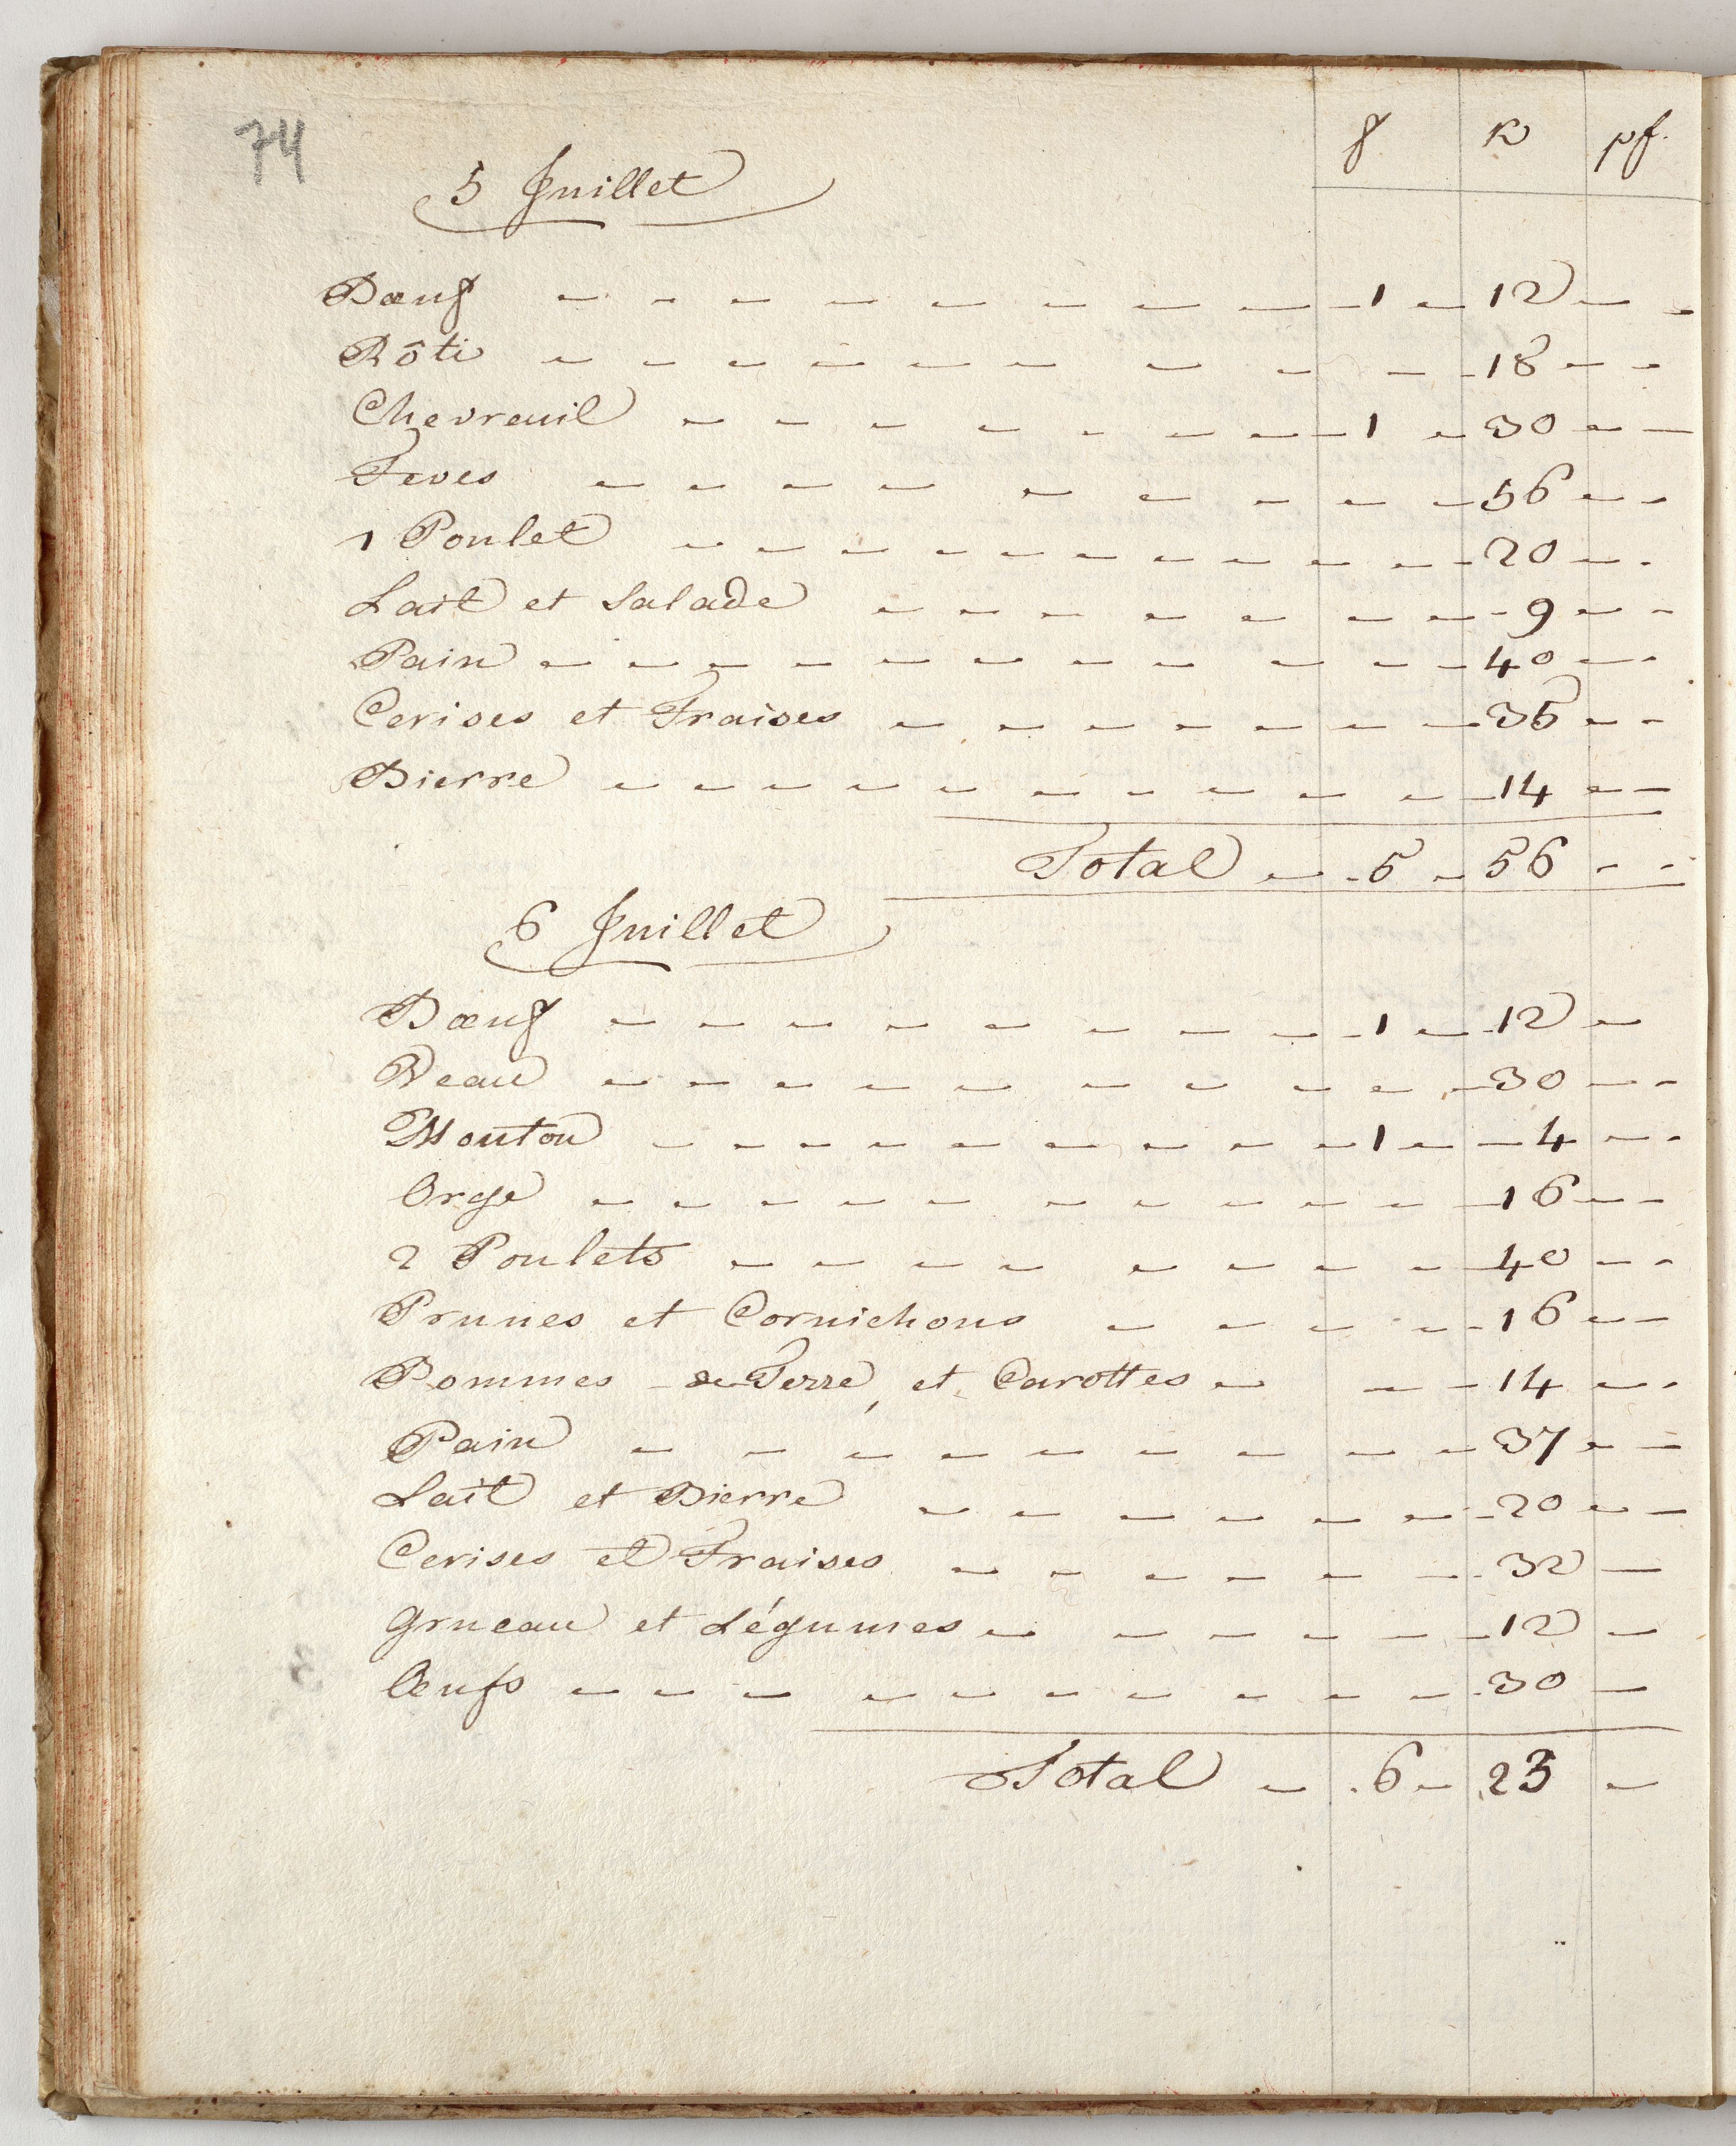 74
f K pf.
5 Juillet
Bœuf — — — — — — — — — 1 — 12 — —
Rôti — — — — — — — — — 18 — —
Chevreuil — — — — — — — — 1 — 30 — —
Feves — — — — — — — — — 56 — —
1 Poulet — — — — — — — — — — 20 — —
Lait et Salade — — — — — — — — 9 — —
Pain — — — — — — — — — — 40 — —
Cerises et Fraises — — — — — — — 35 — —
Bierre — — — — — — — — — — 14 — —
Total — 5 — 56 — —
6 Juillet
Bœuf — — — — — — — — — 1 — 12 —
Veau — — — — — — — — — — 30 — —
Mouton — — — — — — — — — 1 — 4 — —
Orge — — — — — — — — — — 16 — —
2 Poulets — — — — — — — — 40 — —
Prunes et Cornichons — — — — 16 — —
Pommes de Terre, et Carottes — — — 14 — —
Pain — — — — — — — — — 37 — —
Lait et Bierre — — — — — — — 20 — —
Cerises et Fraises — — — — — — 32 —
Grueau et Légumes — — — — — — 12 —
Œufs — — — — — — — — — — 30 —
Total — 6 — 23 —